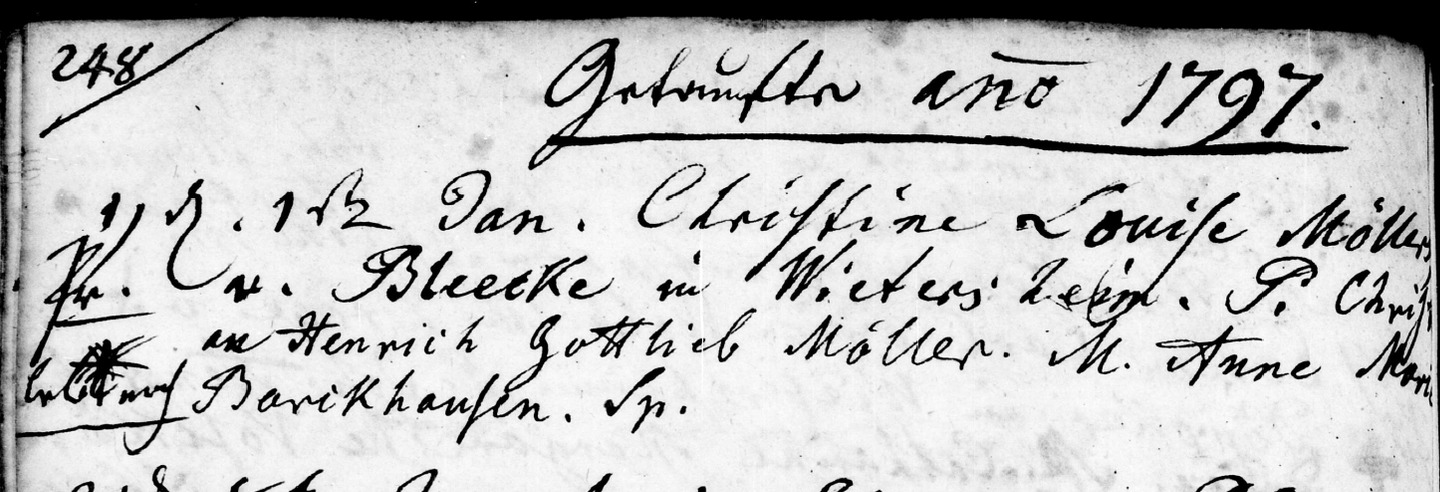 248
Getaufte año 1797.
1) d. 1st Jan. Christine Louise Möllers
Pr. v. Bleecke in Wietersheim. P. Christ
an Henrich Gottlieb Möller. M. Anne Mari
lebt noch Barckhausen. Sp.